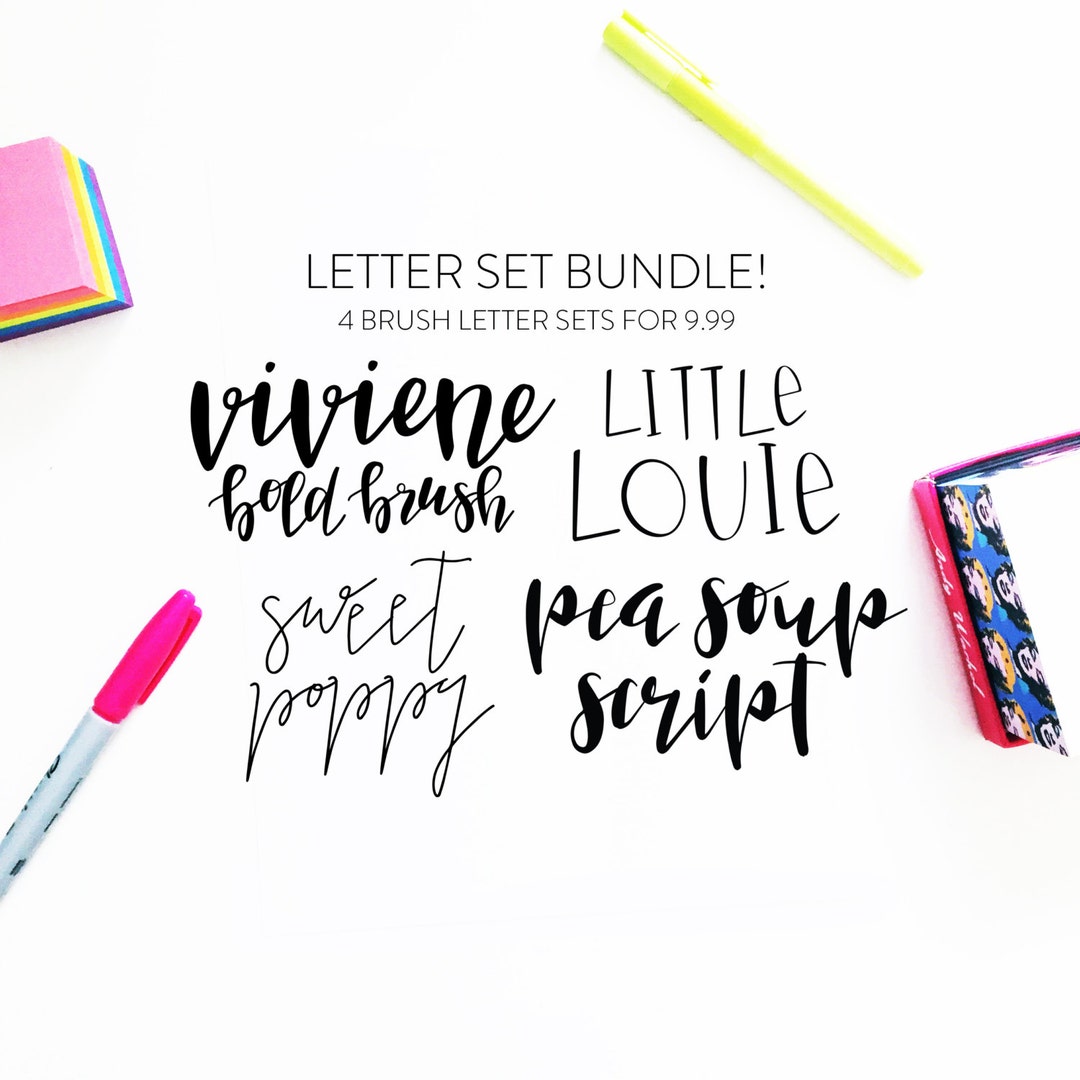 LETTER SET BUNDLE!
4 BRUSH LETTER SETS FOR 9.99
viviene
bold brush
LITTLE
LOUIE
sweet
poppy
pea soup
script
Andy Warhol